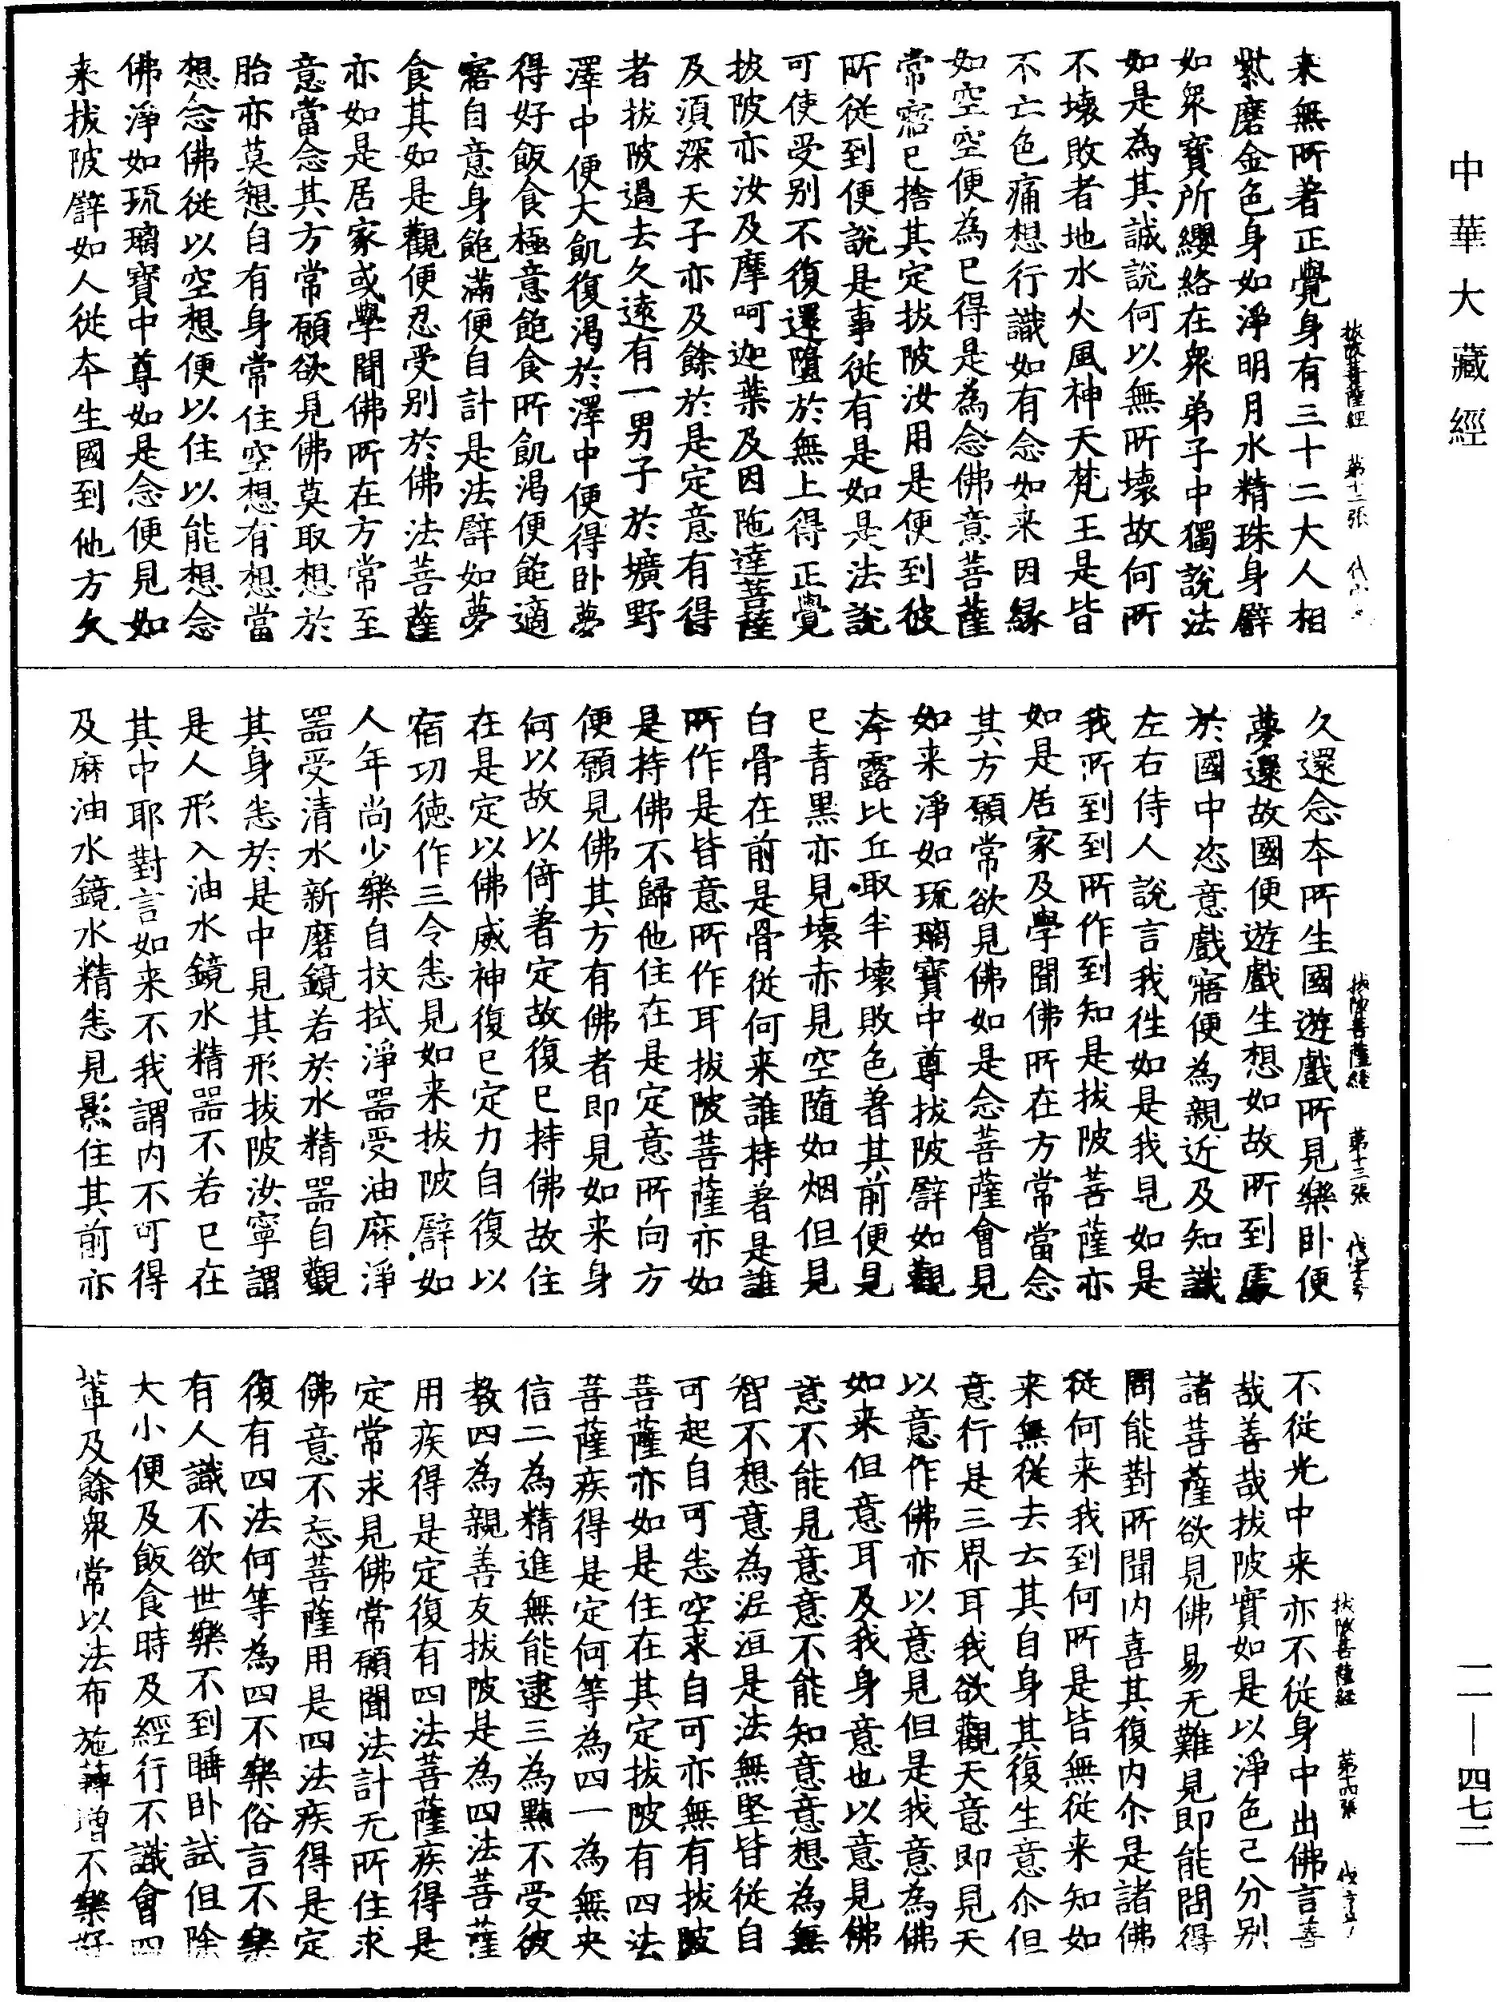 中華大藏經
拔陂菩薩經 第十二張
来無所著正覺身有三十二大人相
紫磨金色身如淨明月水精珠身譬
如衆寶所纓絡在衆弟子中獨說法
如是為其誠說何以無所壞故何所
不壞敗者地水火風神天梵王是皆
不亡色痛想行識如有念如来因緣
如空空便為已得是為念佛意菩薩
常寤已捨其定拔陂汝用是便到彼
所從到便說是事從有是如是法說
可使受別不復還墮於無上得正覺
拔陂亦汝及摩呵迦葉及因陁達菩薩
及湏深天子亦及餘於是定意有得
者拔陂過去久遠有一男子於壙野
澤中便大飢復渴於澤中便得卧夢
得好飯食極意飽食所飢渴便飽適
寤自意身飽滿便自計是法譬如夢
食其如是觀便忍受別於佛法菩薩
亦如是居家或學聞佛所在方常至
意當念其方常願欲見佛莫取想於
胎亦莫想自有身常住空想有想當
想念佛從以空想便以住以能想念
佛淨如琉璃寶中尊如是念便見如
来拔陂譬如人從夲生國到他方久
拔陂菩薩經 第十三張
久還念夲所生國遊戲所見樂卧便
夢還故國便遊戲生想如故所到處
於國中恣意戲寤便為親近及知識
左右侍人說言我徃如是我見如是
我所到到所作到知是拔陂菩薩亦
如是居家及學聞佛所在方常當念
其方願常欲見佛如是念菩薩會見
如来淨如琉璃寶中尊拔陂譬如觀
洿露比丘取半壞敗色著其前便見
已青黑亦見壞赤見空隨如烟但見
白骨在前是骨從何来誰持著是誰
所作是皆意所作耳拔陂菩薩亦如
是持佛不歸他住在是定意所向方
便願見佛其方有佛者即見如来身
何以故以倚著定故復已持佛故住
在是定以佛威神復已定力自復以
宿功徳作三令悉見如来拔陂譬如
人年尚少樂自抆拭淨器受油麻淨
器受清水新磨鏡若於水精器自觀
其身悉於是中見其形拔陂汝寧謂
是人形入油水鏡水精器不若已在
其中耶對言如来不我謂内不可得
及麻油水鏡水精悉見影住其前亦
拔陂菩薩經 第十四張
不從光中来亦不從身中出佛言善
哉善哉拔陂實如是以淨色已分別
諸菩薩欲見佛易无難見即能問得
問能對所聞内喜其復内尒是諸佛
從何来我到何所是皆無從来知如
来無從去去其自身其復生意尒但
意行是三界耳我欲觀天意即見天
以意作佛亦以意見但是我意為佛
如来但意耳及我身意也以意見佛
意不能見意意不能知意意想為無
智不想意為泥洹是法無堅皆從自
可起自可悉空求自可亦無有拔陂
菩薩亦如是住在其定拔陂有四法
菩薩疾得是定何等為四一為無央
信二為精進無能逮三為黠不受彼
教四為親善友拔陂是為四法菩薩
用疾得是定復有四法菩薩疾得是
定常求見佛常願聞法計无所住求
佛意不忘菩薩用是四法疾得是定
復有四法何等為四不樂俗言不樂
有人識不欲世樂不到睡卧試但除
大小便及飯食時及經行不識會四
輩及餘衆常以法布施薄增不樂好
一一—四七二